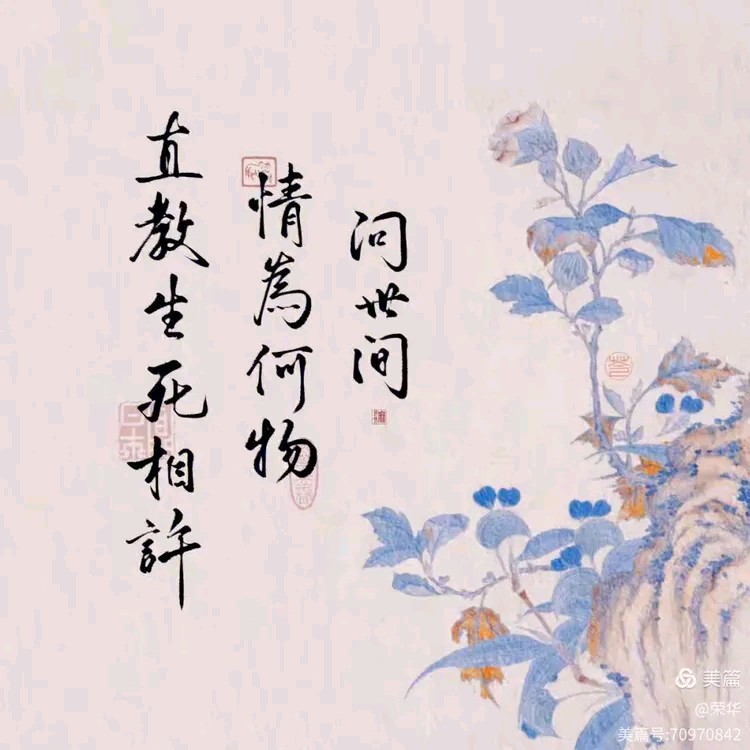 问世间
情為何物
直教生死相許
美篇
@荣华
美篇号:70970842